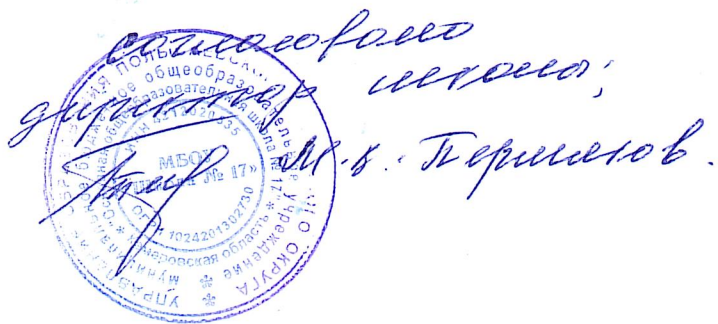 согласовано
директор школы:
М.К. Пермяков.
УПРАВЛЕНИЕ ОБРАЗОВАНИЯ ПОЛЫСАЕВСКОГО ОКРУГА
Муниципальное бюджетное общеобразовательное учреждение
общеобразовательная школа № 17" * Кемеровская область *
ОГРН 1024201302730
МБОУ
"Школа № 17"